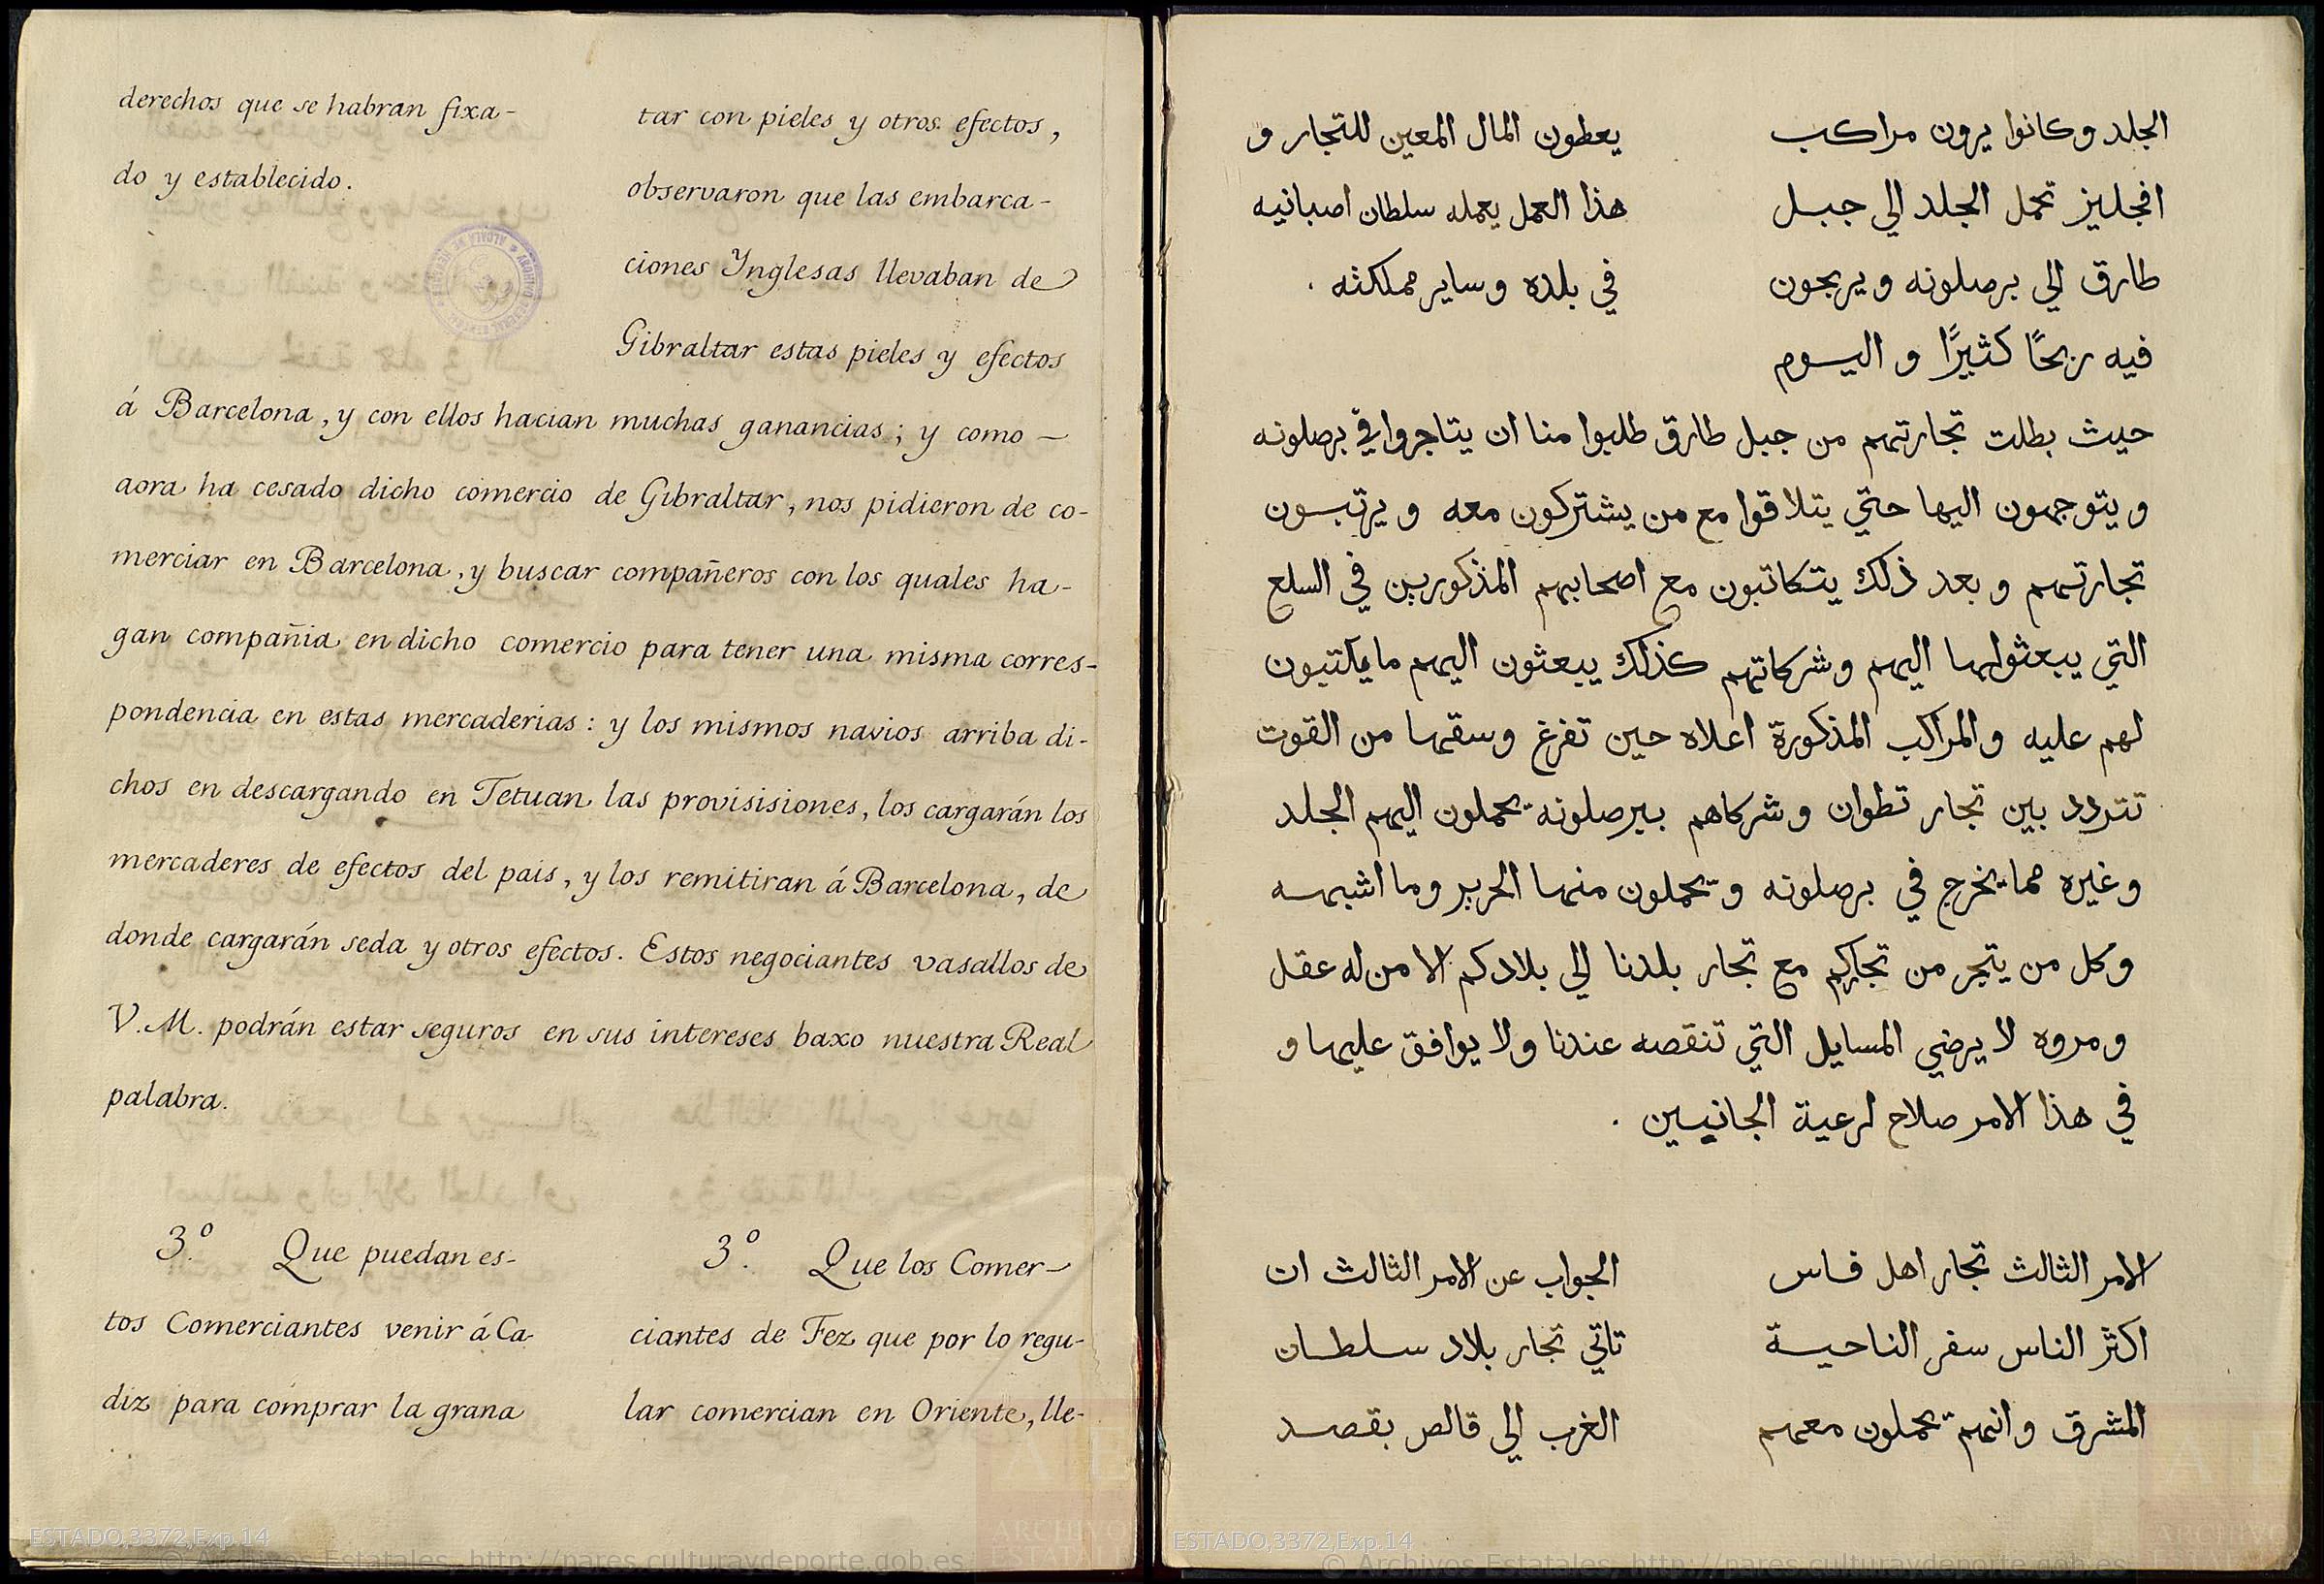 derechos que se habran fixa-
do y establecido.
tar con pieles y otros efectos,
observaron que las embarca-
ciones Ynglesas llevaban de
Gibraltar estas pieles y efectos
á Barcelona, y con ellos hacian muchas ganancias; y como —
aora ha cesado dicho comercio de Gibraltar, nos pidieron de co-
merciar en Barcelona, y buscar compañeros con los quales ha-
gan compañia en dicho comercio para tener una misma corres-
pondencia en estas mercaderias: y los mismos navios arriba di-
chos en descargando en Tetuan las provisisiones, los cargarán los
mercaderes de efectos del pais, y los remitiran á Barcelona, de
donde cargarán seda y otros efectos. Estos negociantes vasallos de
V. M. podrán estar seguros en sus intereses baxo nuestra Real
palabra.
3.º Que puedan es-
tos Comerciantes venir á Ca-
diz para comprar la grana
3.º Que los Comer-
ciantes de Fez que por lo regu-
lar comercian en Oriente, lle-
الجلد وكانوا يرون مراكب
انجليز تحمل الجلد الي جبل
طارق الي برصلونه ويربحون
فيه ربحًا كثيرًا و اليوم
يعطون المال المعين للتجار و
هذا العمل يعمله سلطان اصبانيه
في بلده وساير مملكته .
حيث بطلت تجارتهم من جبل طارق طلبوا منا ان يتاجروا في برصلونه
ويتوجهون اليها حتي يتلاقوا مع من يشتركون معه ويرتبون
تجارتهم وبعد ذلك يتكاتبون مع اصحابهم المذكورين في السلع
التي يبعثولها اليهم وشركاتهم كذلك يبعثون اليهم ما يكتبون
لهم عليه والمراكب المذكورة اعلاه حين تفرغ وسقها من القوت
تتردد بين تجار تطوان وشركاهم ببرصلونه يحملون اليهم الجلد
وغيره مما يخرج في برصلونه ويحملون منها الحرير وما اشبهه
وكل من يتجر من تجاركم مع تجار بلدنا الي بلادكم الا من له عقل
ومروه لا يرضي المسايل التي تنقصه عندنا ولا يوافق عليها و
في هذا الامر صلاح لرعية الجانبين .
الامر الثالث تجار اهل فاس
اكثر الناس سفر الناحية
المشرق وانهم يحملون معهم
الجواب عن الامر الثالث ان
تاتي تجار بلاد سلطان
الغرب الي قالص بقصد
ESTADO,3372,Exp.14
© Archivos Estatales, http://pares.culturaydeporte.gob.es
ESTADO,3372,Exp.14
© Archivos Estatales, http://pares.culturaydeporte.gob.es